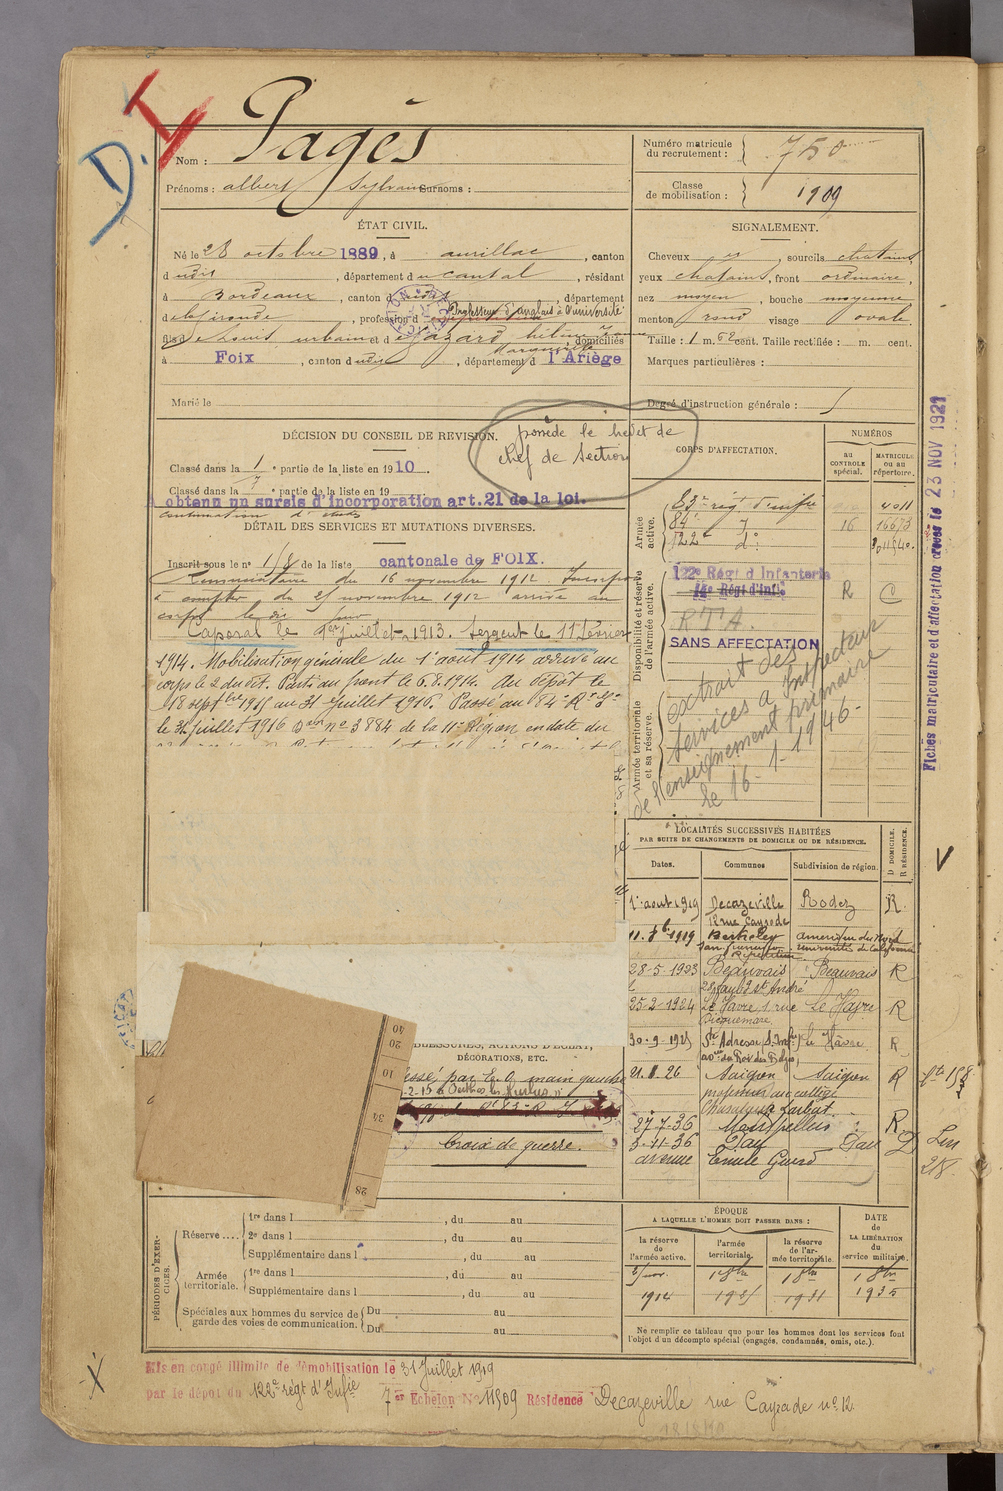 D.I
Nom : Pagès
Prénoms : albert Sylvain Surnoms :
Numéro matricule
du recrutement : 750
Classe
de mobilisation : 1909
ÉTAT CIVIL.
Né le 28 octobre 1889, à aurillac, canton
d udit, département du cantal, résidant
à Bordeaux, canton dudit, département
de la Gironde, profession d Professeur d'anglais à l'université
fils de Louis urbain et de Gazard hélène Jeanne, domiciliés
Marguerite
à Foix, canton dudit, département d l'Ariège
Marié le
SIGNALEMENT.
Cheveux et, sourcils chatains,
yeux chatains, front ordinaire,
nez moyen, bouche moyenne,
menton rond visage ovale.
Taille : 1 m. 62 cent. Taille rectifiée : m. cent.
Marques particulières :
Degré d'instruction générale : 5
DÉCISION DU CONSEIL DE REVISION.
possède le brevet de
chef de Section
Classé dans la 1 e partie de la liste en 1910.
Classé dans la 7 e partie de la liste en 19
A obtenu un sursis d'incorporation art. 21 de la loi.
continuation d'études
DÉTAIL DES SERVICES ET MUTATIONS DIVERSES.
Inscrit sous le no 1/8 de la liste cantonale de FOIX.
du 16 novembre 1912. Incorporé
à compter du 25 novembre 1912 arrivé au
corps le dit jour
Caporal le 1er juillet 1913. Sergent le 11 février
1914. Mobilisation générale du 1er août 1914 arrivé au
corps le 2 du dit. Parti au front le 6.8.1914. Au dépôt le
18 septbre 1915 au 31 juillet 1916. Passé au 84e Rt d'Ie
le 31 juillet 1916 Don no 3884 de la 11e Région en date du
CORPS D'AFFECTATION.
NUMÉROS
au
CONTROLE
spécial.
MATRICULE
ou au
répertoire.
Armée
active.
83e rég d'infie 4011
84e 16 16673
122e do
Disponibilité et réserve
de l'armée active.
122e Régt d'Infanterie R C
14e Régt d'Infie
R.T.A.
SANS AFFECTATION
Armée territoriale
et sa réserve.
extrait des
services a Inspecteur
de l'enseignement primaire
le 16-1-1946-
Fiches matriculaire et d'affectation créées le 23 NOV 1921
LOCALITÉS SUCCESSIVES HABITÉES
PAR SUITE DE CHANGEMENTS DE DOMICILE OU DE RÉSIDENCE.
Dates. Communes Subdivision de région. D DOMICILE. R RÉSIDENCE.
1er aout 1919 Decazeville Rodez R.
12 rue Cayrade
11. 1919 Berkeley amerique du Nord
San Francisco université de Californie
28-5-1923 Beauvais Beauvais R
St André
25-2-1924 Le Havre 1 rue Le Havre R
Bicquemare
30-9-1925 Ste Adresse S. Infre le Havre R
av du Roi des Belges
21.8.26 Saigon Saigon R
professeur au collège
Chasseloup Laubat
27-7-36 Montpellier R.
3-11-36 Pau Pau D
avenue Emile Guird
BLESSURES, ACTIONS D'ÉCLAT,
DÉCORATIONS, ETC.
Blessé par E. O. main gauche
Croix de guerre.
40
20
10
34
28
PÉRIODES D'EXERCICES.
Réserve .... 1re dans l , du au
2e dans l , du au
Supplémentaire dans l , du au
Armée
territoriale. 1re dans l , du au
Supplémentaire dans l , du au
Spéciales aux hommes du service de
garde des voies de communication. Du au
Du au
ÉPOQUE
A LAQUELLE L'HOMME DOIT PASSER DANS :
la réserve
de
l'armée active.
l'armée
territoriale.
la réserve
de l'armée territoriale.
DATE
DE
LA LIBÉRATION
du
service militaire.
1914 1925 1931 1935
Ne remplir ce tableau que pour les hommes dont les services font
l'objet d'un décompte spécial (engagés, condamnés, omis, etc.).
Mis en congé illimité de démobilisation le 31 Juillet 1919
par le dépôt du 122e régt d'Infie 7er Echelon No 11509 Résidence Decazeville rue Cayrade no 12